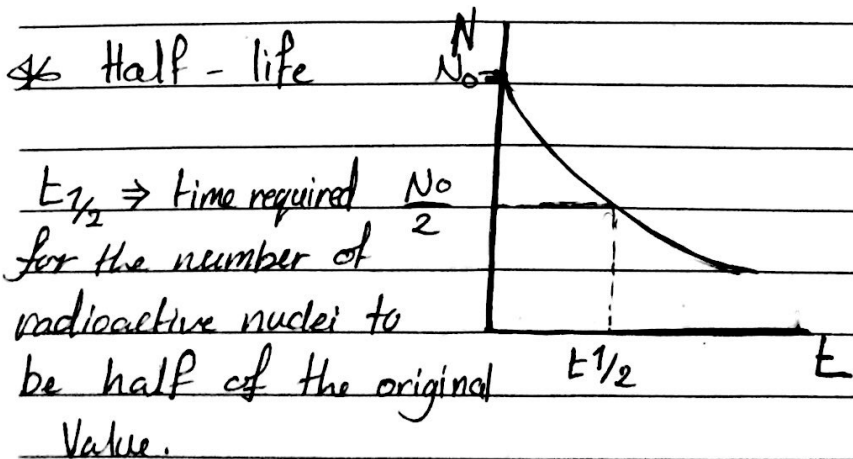 * Half - life
N
N₀
t1/2 ⇒ time required
N₀/2
for the number of
radioactive nuclei to
be half of the original
Value.
t1/2
t